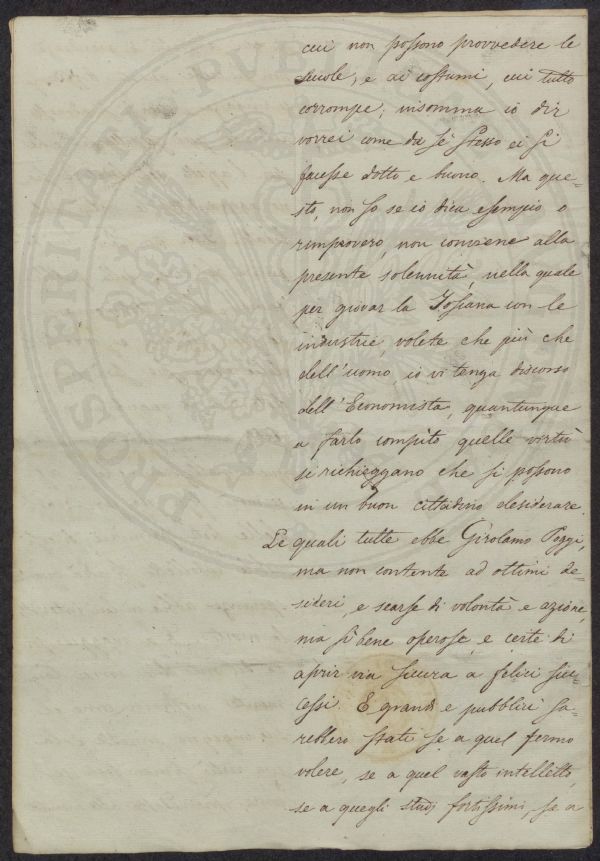 cui non possono provvedere le
scuole, e ai costumi, cui tutto
corrompe; insomma io dir
vorrei come da sè stesso ei si
facesse dotto e buono. Ma que-
sto, non so se io dica esempio o
rimprovero, non conviene alla
presente solennità, nella quale
per giovar la Toscana con le
industrie, volete che più che
dell'uomo, io vi tenga discorso
dell'Economista, quantunque
a farlo compito quelle virtù
si richieggano che si possono
in un buon cittadino desiderare.
Le quali tutte ebbe Girolamo Poggi,
ma non contente ad ottimi de-
sideri, e scarse di volontà e azione,
ma sì bene operose, e certe di
aprir via sicura a felici suc-
cessi. E grandi e pubblici sa-
rebbero stati se a quel fermo
volere, se a quel vasto intelletto,
se a quegli studj fortissimi, se a
PROSPERITATI PUBLICAE